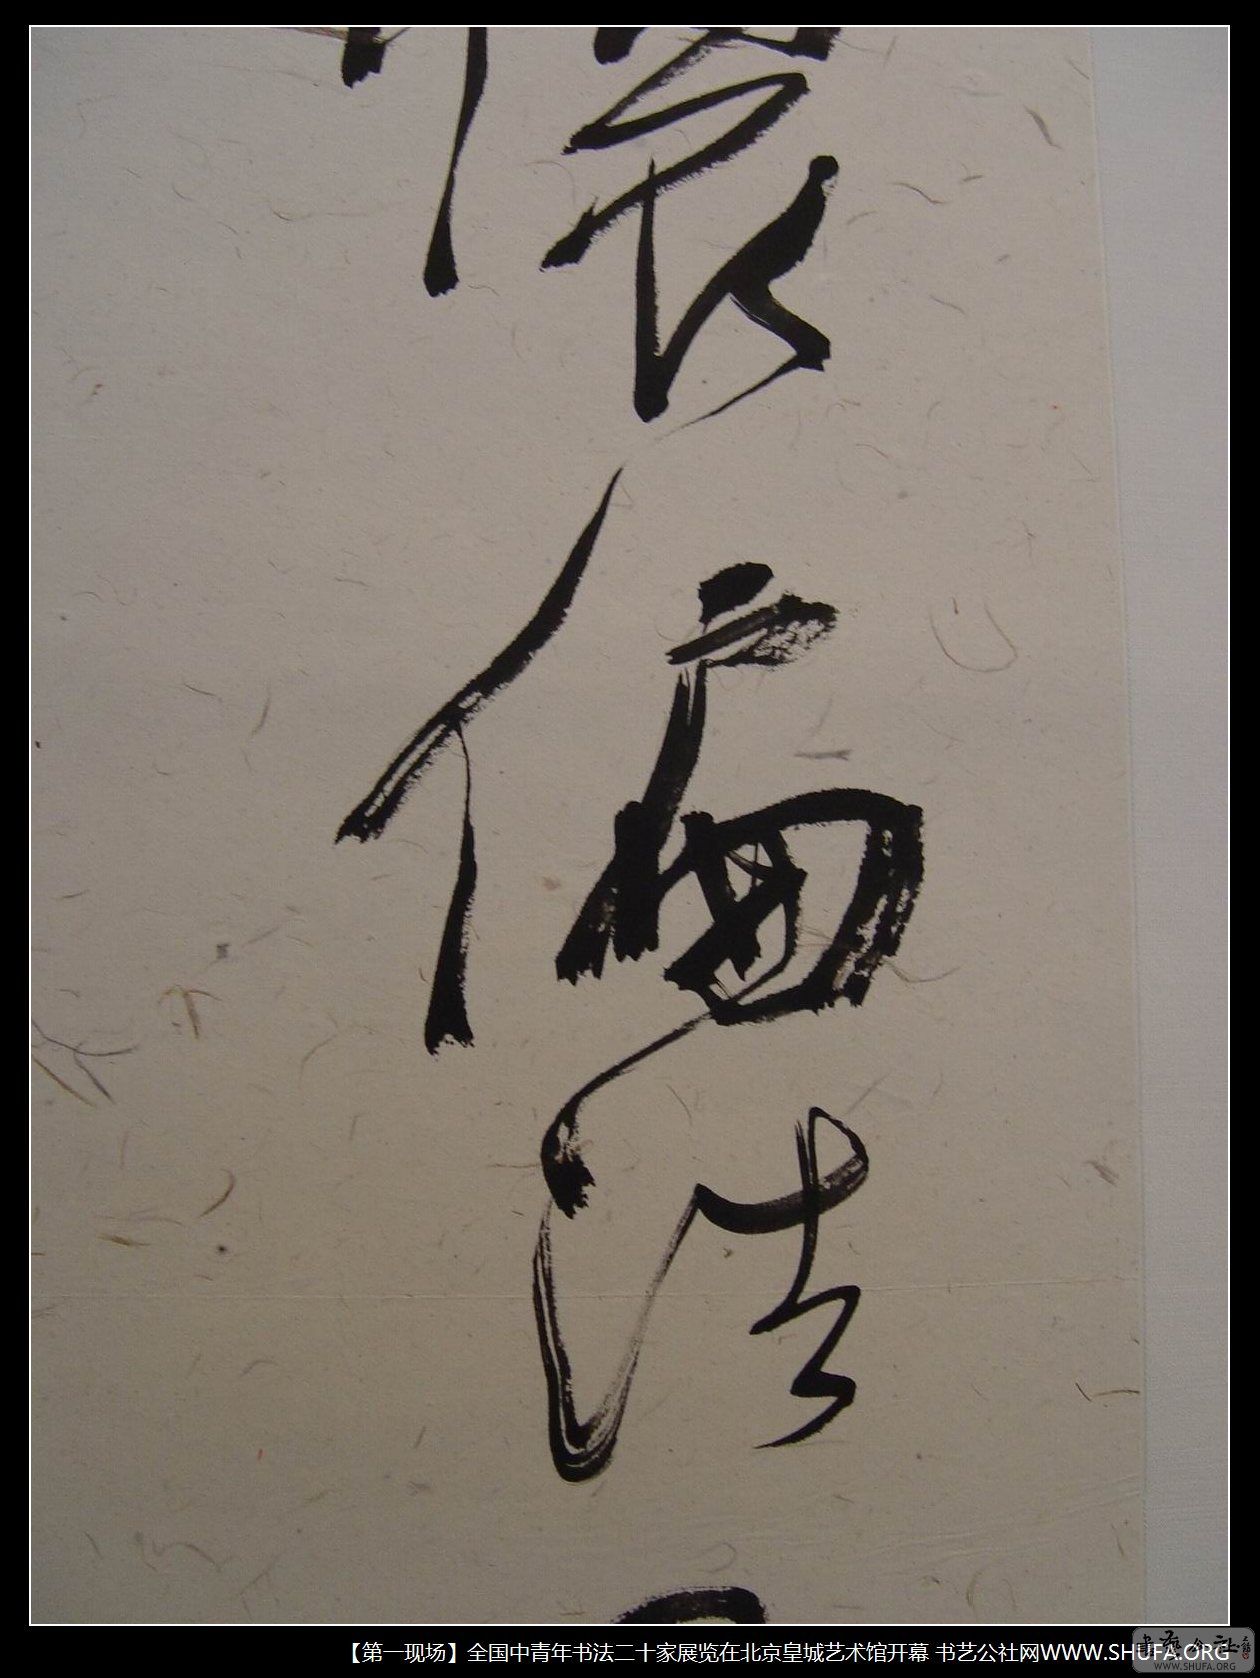 偏法
【第一现场】全国中青年书法二十家展览在北京皇城艺术馆开幕 书艺公社网WWW.SHUFA.ORG
书艺公社
WWW.SHUFA.ORG